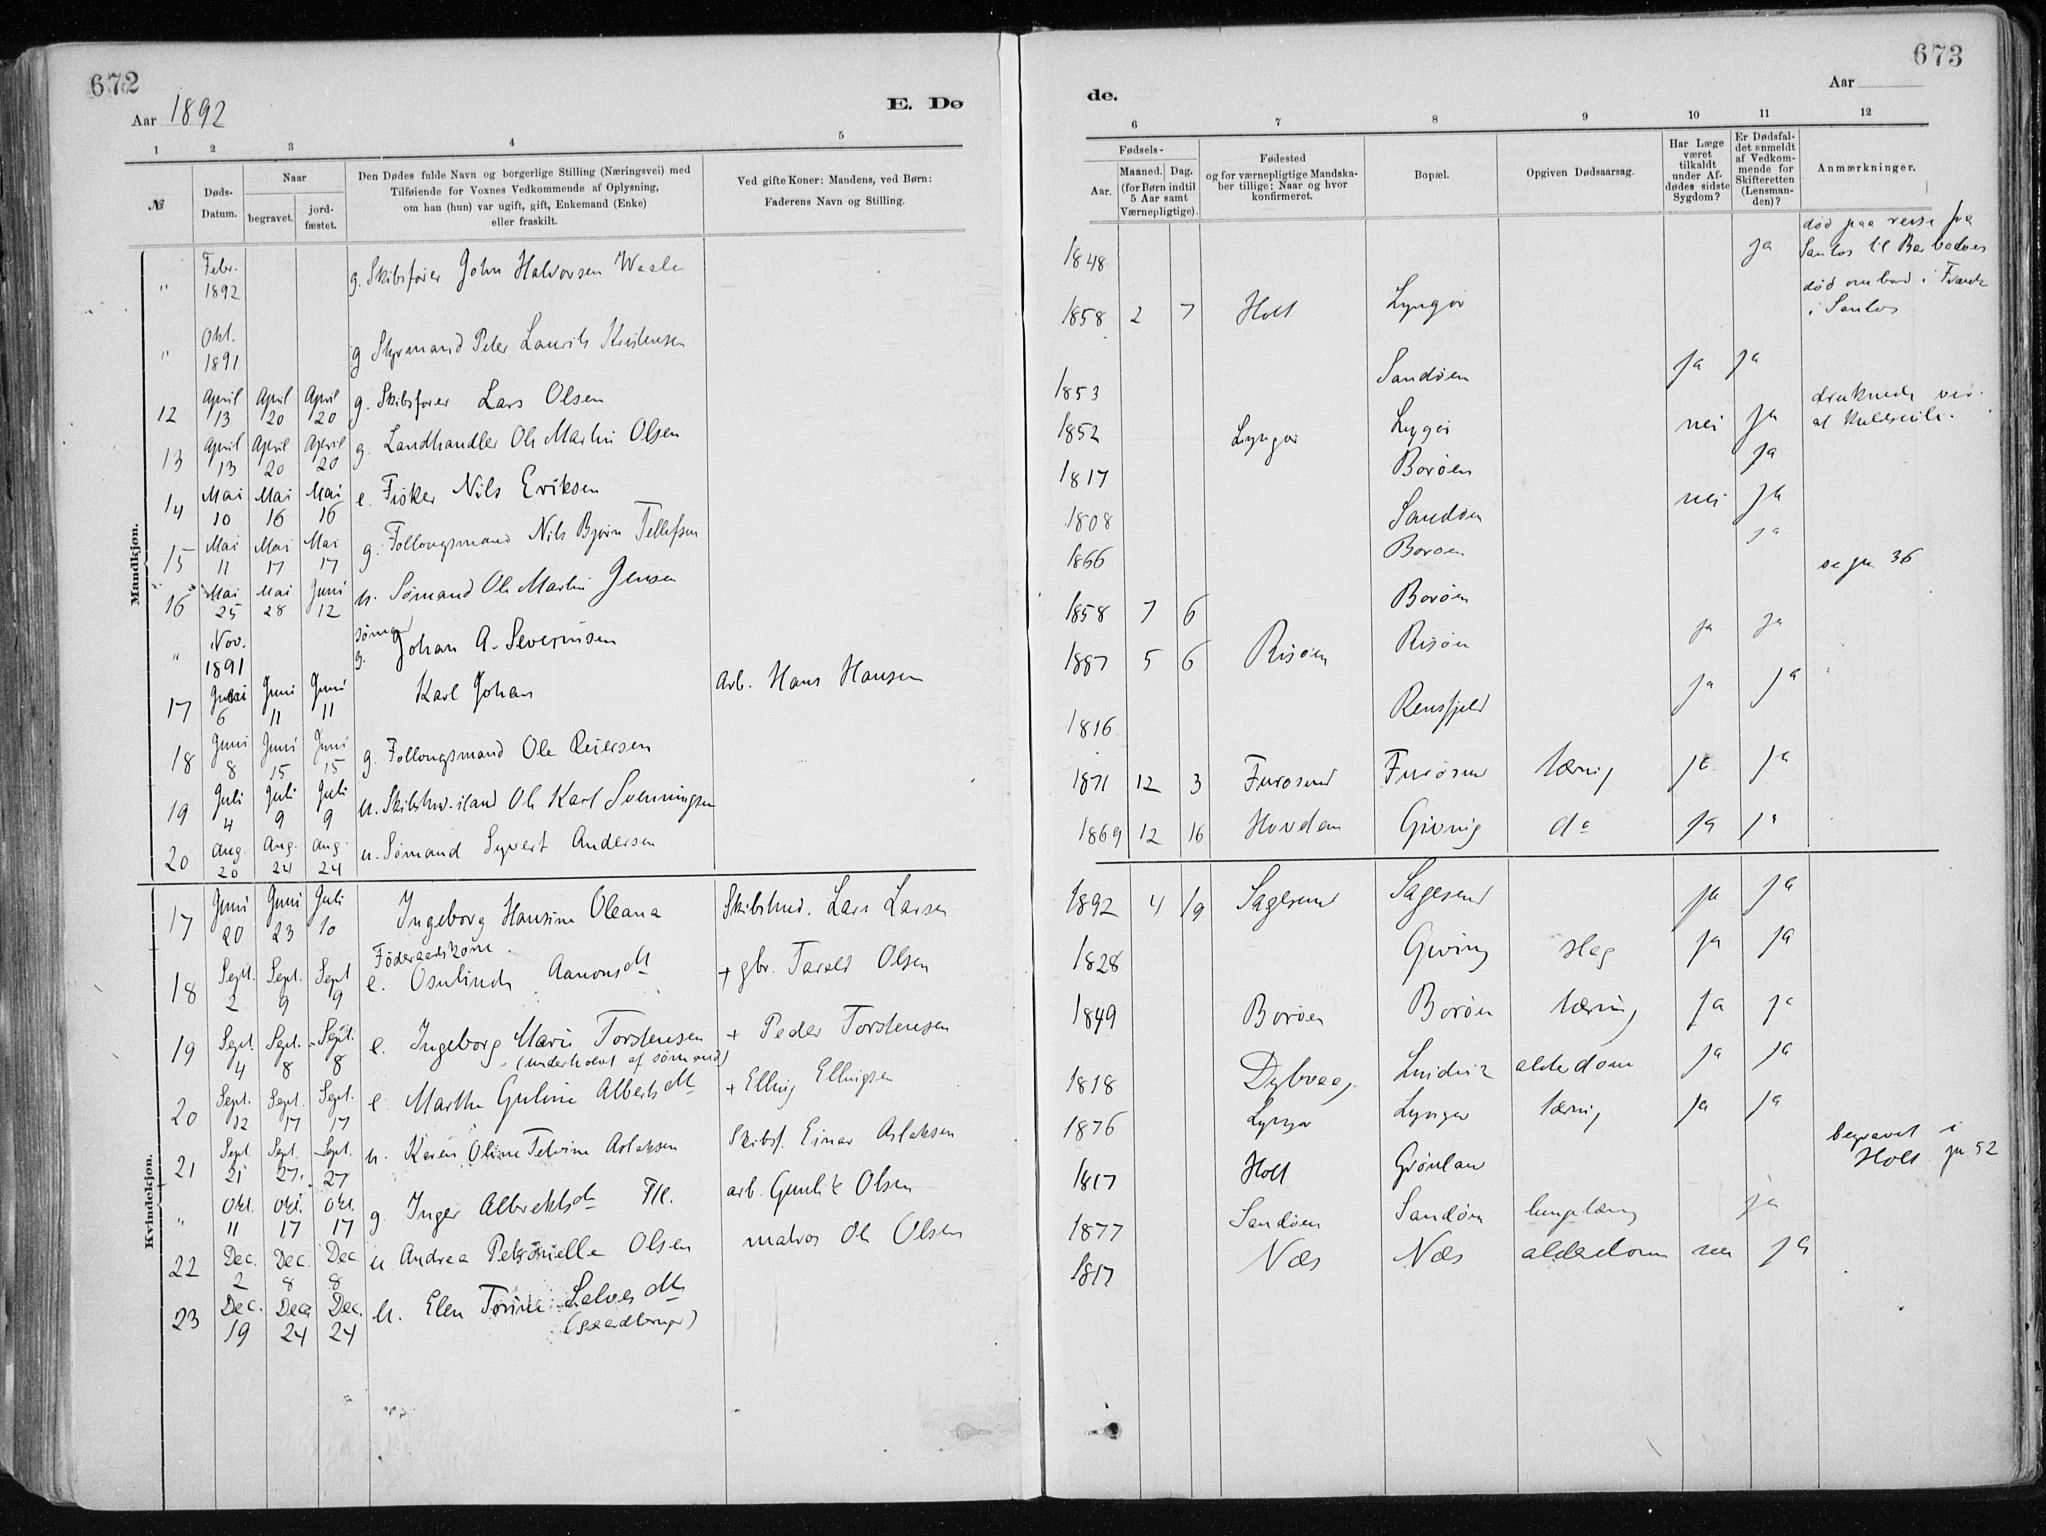 672
Aar 1892
E. Dø
1 2 3 4 5
№
Døds-Datum.
Naar
begravet.
jord-fæstet.
Den Dødes fulde Navn og borgerlige Stilling (Næringsvei) med
Tilføiende for Voxnes Vedkommende af Oplysning,
om han (hun) var ugift, gift, Enkemand (Enke)
eller fraskilt.
Ved gifte Koner: Mandens, ved Børn:
Faderens Navn og Stilling.
Mandkjøn.
" Febr. 1892 g. Skibsfører John Halvorsen Waale
" Okt. 1891 g Styrmand Peter Laurits Kristensen
12 April 13 April 20 April 20 g. Skibsfører Lars Olsen
13 April 13 April 20 April 20 g. Landhandler Ole Martin Olsen
14 Mai 10 Mai 16 Mai 16 e. Fisker Nils Eriksen
15 Mai 11 Mai 17 Mai 17 g. Follougsmand Nils Bjørn Tellefsen
16 Mai 25 Mai 28 Juni 12 u. Sømand Ole Martin Jensen
" Nov. 1891 g. Johan A. Severinsen
17 Juni 6 Juni 11 Juni 11 Karl Johan Arb. Hans Hansen
18 Juni 8 Juni 15 Juni 15 g. Follougsmand Ole Reiersen
19 Juli 4 Juli 9 Juli 9 u. Ole Karl Svenningsen
20 Aug. 20 Aug. 24 Aug. 24 u. Sømand Syvert Andersen
Kvindekjøn.
17 Juni 20 Juni 23 Juli 10 Ingeborg Hansine Oleana Skibstmd. Lars Larsen
Föderaadskone.
18 Sept. 2 Sept. 9 Sept 9 e. Aanonsdt + gbr. Tarald Olsen
19 Sept. 4 Sept. 8 Sept. 8 e. Ingeborg Marie Torstensen + Peder Torstensen
(underholdt af sømand)
20 Sept. 12 Sept. 17 Sept. 17 e. Marthe Guline Albertsdt + Elling Ellingsen
21 Sept. 21 Sept. 27. Sept. 27 u. Karen Oline Aslaksen Skibsf. Einar Aslaksen
" Okt. 11 Okt. 17 Okt. 17 g. Inger Albrektsdt arb. Gunlik Olsen
22 Dec. 2 Dec. 8 Dec 8 u. Andrea Petronelle Olsen matros Ole Olsen
23 Dec. 19 Dec. 24 Dec. 24 u. Elen Torine Salvesdt
673
Aar
de.
6 7 8 9 10 11 12
Fødsels-
Aar.
Maaned. Dag.
(for Børn indtil
5 Aar samt
Værnepligtige).
Fødested
og for værnepligtige Mandska-
ber tillige: Naar og hvor
konfirmeret.
Bopæl.
Opgiven Dødsaarsag.
Har Læge
været
tilkaldt
under Af-
dødes sidste
Sygdom?
Er Dødsfal-
det anmeldt
af Vedkom-
mende for
Skifteretten
(Lensman-
den)?
Anmærkninger.
1848 ja død paa reise fra
Santos til Barbados
1858 2 7 Holt Lyngør død ombord i
i Santos
1853 Sandøen ja ja
1852 Lyngør Lyngør nei ja druknede
1817 Borøen ja
1808 Sandøen nei ja
1866 Borøen ja
1858 7 6 Borøen se jn. 36
1887 5 6 Risøen Risøen ja ja
1816 Rensfjeld ja ja
1871 12 3 Furøsund Furøsund tæring ja ja
1869 12 16 Hovdan Giving do ja ja
1892 4 19 Sagesund Sagesund ja ja
1828 Giving slag ja ja
1849 Borøen Borøen tæring ja ja
1818 Dybvaag alderdom ja ja
1876 Lyngør Lyngør tæring ja ja
1817 Holt Grønland begravet i
Holt jn 52
1877 Sandøen Sandøen lungetæring ja
1817 Næs Næs alderdom nei ja